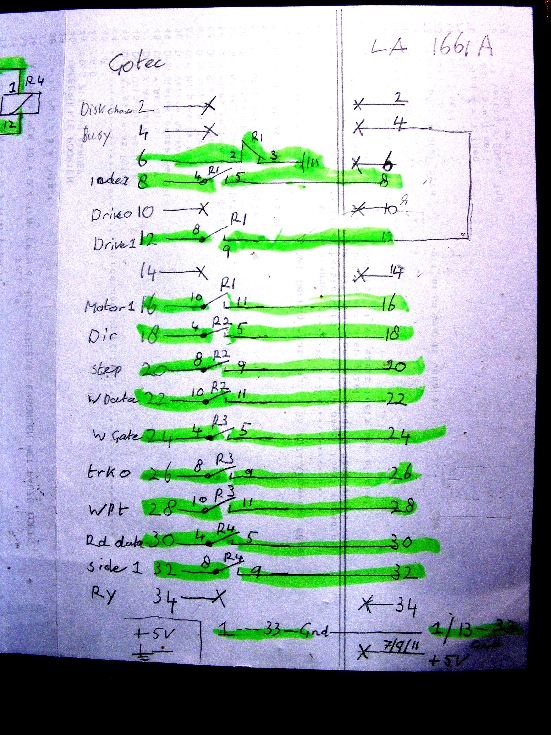 Gotec LA 1661A
1 R4
12
Diskchan 2 2
Busy 4 4
R1
6 2 3 6
Index 8 4 R1 5 8
Drive0 10 10
Drive1 12 8 R1 9 12
14 14
Motor1 16 10 R1 11 16
Dir 18 4 R2 5 18
Step 20 8 R2 9 20
W Data 22 10 R2 11 22
W Gate 24 4 R3 5 24
trk0 26 8 R3 9 26
WPt 28 10 R3 11 28
Rd data 30 4 R4 5 30
Side 1 32 8 R4 9 32
Ry 34 34
+5V 1 — 33 — Gnd 1/13 - 33
7/9/11
+5V